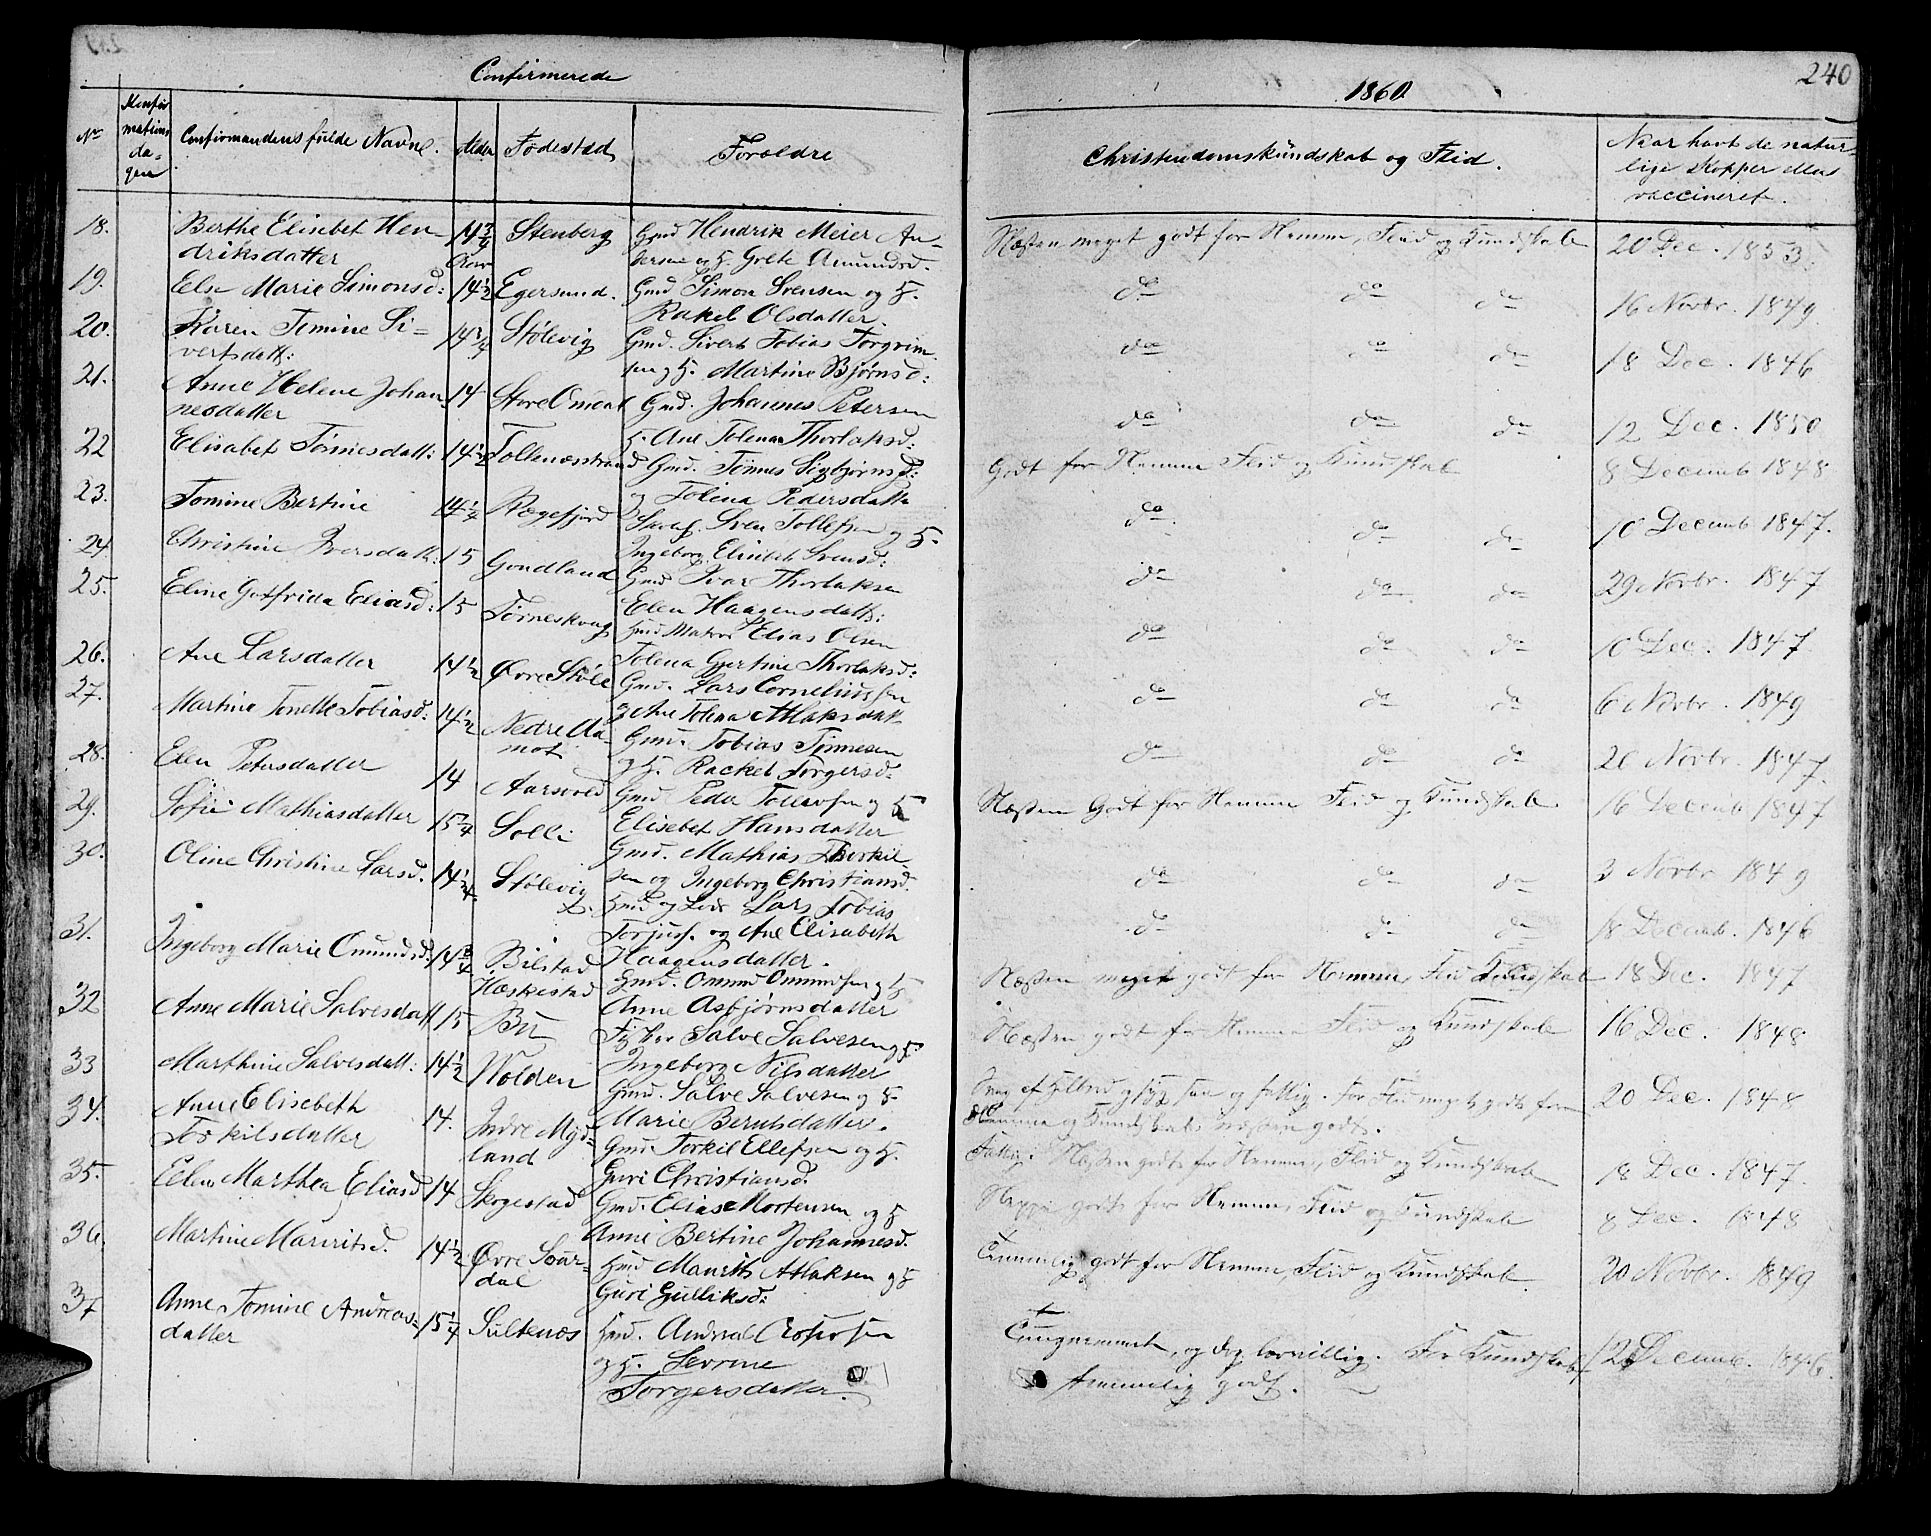 Confirmerede
1860.
240
No
Konfir
mations
da-
gen
Confirmandens fulde Navne.
Alder
Fødested
Forældre
Christendomskundskab og Flid.
Naar havt de natur-
lige Kopper eller
vaccineret.
18.
Berthe Elisebet Hen-
driksdatter
14 3/4
Stenberg
Gmd Hendrik Meier An-
dersen og H. Grete Amundsd.
Næsten meget godt for Nemme, Flid og Kundskab
20 Dec. 1853.
19.
Else Marie Simonsd:
14 1/2
Egersund.
Gmd Simon Svensen og H.
Rakel Olsdatter.
do do do
16 Novbr. 1849.
20.
Karen Tomine Si-
vertsdatt:
14 3/4
Stølevig
Gmd. Sivert Tobias Torgrim
sen og H. Martine Bjørnsd:
do do do
18 Dec. 1846
21.
Anne Helene Johan
nesdatter
14
Store Omdal
Gmd. Johannes Petersen
H. Ane Tolena Thorlaksd.
do do do
12 Dec. 1850
22
Elisabet Tønnesdatt:
14 1/2
Tollenæsstrand
Gmd. Tønnes Sigbjørnsd:
og Tolena Pedersdatte
Godt for Nemme Flid og Kundskab
8 Decemb 1848
23.
Tomine Bertine
14 1/4
Rægefjord
Sven Tollefsen og H.
Ingeborg Elisebet Svensd:
do do do
10 Decemb 1847.
24
Christine Iversdatt:
15
Gondland
Gmd Ivar Thorlaksen
Elen Haagensdatt:
do do do
29 Novbr. 1847
25.
Eline Gotfrida Eliasd:
15
Tørneskoug
Hmd Matros Elias Olsen
Tolena Gjertine Thorlaksd:
do do do
10 Dec. 1847.
26.
Ane Larsdatter
14 1/2
Øvre Støle
Gmd. Lars Corneliussen
og Ane Tolena Atlaksdatt
do do do
6 Novbr. 1849
27.
Martine Tonette Tobiasd:
14 1/2
Nedre Aa-
mot
Gmd. Tobias Tønnesen
og H. Rackel Torgersd:
do do do
20 Novbr. 1847.
28.
Elen Petersdatter
14
Aarsvold
Gmd Peder Tollevsen og H
Elisebet Hansdatter
Næsten Godt for Nemme Flid og Kundskab.
16 Decemb 1847
29.
Sofie Mathiasdatter
15 1/4
Solli
Gmd. Mathias Thorkil
sen og Ingeborg Christiansd.
do do do
3 Novbr 1849
30.
Oline Christine Larsd.
14 1/4
Stølevig
Hmd og Lods Lars Tobias
Torjusf. og Ane Elisabeth
Haagensdatter.
do do do
18 Decemb. 1846
31.
Ingeborg Marie Omundsd:
14 3/4
Bilstad
Hæskestad
Gmd. Omund Omundsen og H
Anne Asbjørnsdatter
Næsten meget godt for Nemme, Flid Kundskab
18 Dec. 1847
32
Anne Marie Salvesdatt
15
Bu
Fisker Salve Salvesen og H.
Ingeborg Nilsdatter
Næsten godt for Nemme Flid og Kundskab
16 Dec. 1848
33
Marthine Salvesdatt:
14 1/2
Wolden
Gmd. Salve Salvesen og H.
Marie Berntsdatter.
Svag af Helbred og og fattig. For Flid meget godt for
Nemme og Kundskab næsten godt.
20 Dec. 1848
34.
Anne Elisebeth
Torkilsdatter
14.
Indre Myd-
land
Gmd. Torkil Ellefsen og H.
Guri Christiansd.
Fattig: Næsten godt for Nemme, Flid og Kundskab
18 Dec. 1847.
35.
Elen Marthea Eliasd
14
Skogestad
Gmd. Elias Mortensen og H
Anne Bertine Johannesd.
Neppe godt for Nemme, Flid og Kundskab
8 Dec. 1848
36.
Martine Mauritsd.
14 1/2
Øvre Sour-
dal
Hmd Maurits Atlaksen og H
Guri Gulliksd:
Temmelig godt for Nemme, Flid og Kundskab
20 Novbr. 1849
37
Anne Tomine Andreas-
datter
15 1/4
Sultenæs
Hmd. Andreas
og H. Serrine
Torgersdatter.
Tungnemmet, og dog lærvillig. For Kundskab
temmelig godt.
12 Decemb. 1846.